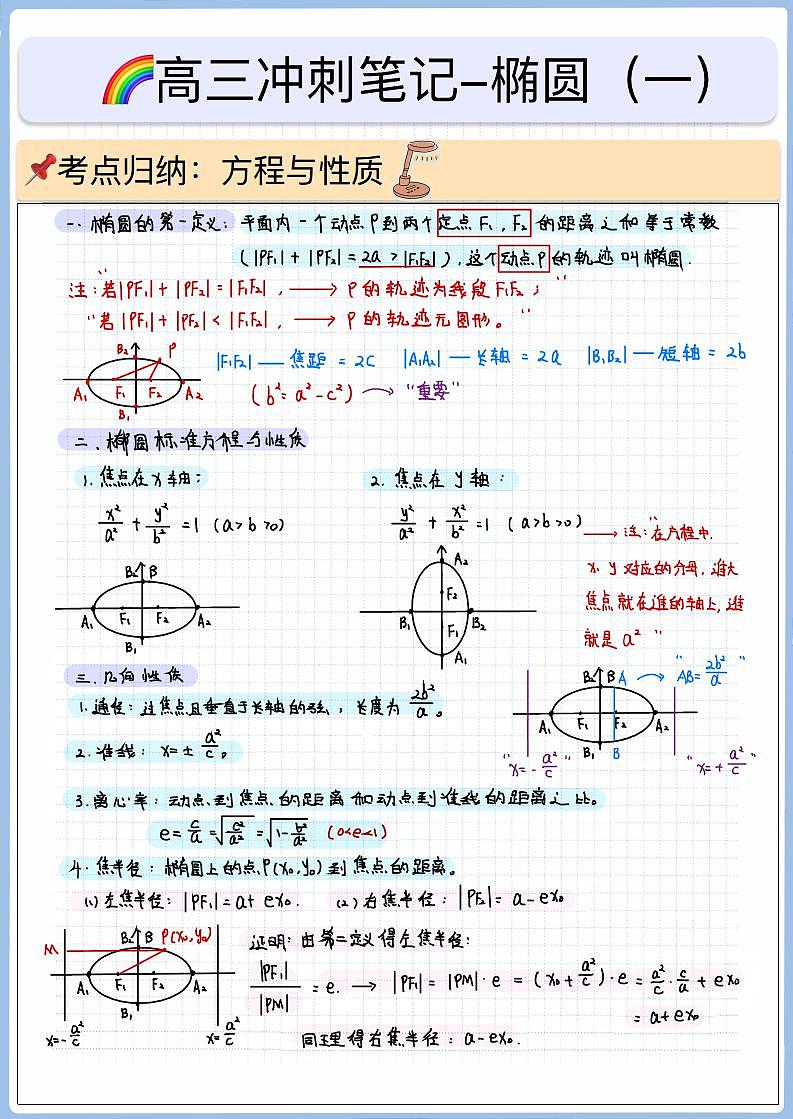 高三冲刺笔记-椭圆（一）
考点归纳：方程与性质
一、椭圆的第一定义：平面内一个动点P到两个定点F₁，F₂的距离之和等于常数
（|PF₁|+|PF₂|=2a>|F₁F₂|），这个动点P的轨迹叫椭圆．
注："若|PF₁|+|PF₂|=|F₁F₂|，→ P的轨迹为线段F₁F₂；"
"若|PF₁|+|PF₂|<|F₁F₂|，→ P的轨迹无图形。"
B₂ P
A₁ F₁ F₂ A₂
B₁
|F₁F₂|—焦距=2c |A₁A₂|—长轴=2a |B₁B₂|—短轴=2b
（b²=a²-c²）→"重要"
二、椭圆标准方程与性质
1.焦点在x轴：
x²/a²+y²/b²=1（a>b>0）
B₂ B
A₁ F₁ F₂ A₂
B₁
2.焦点在y轴：
y²/a²+x²/b²=1（a>b>0）
A₂
F₂
B₁ B₂
F₁
A₁
→注："在方程中．
x、y对应的分母，谁大
焦点就在谁的轴上，谁
就是a²"
三、几何性质
1.通径：过焦点且垂直于长轴的弦，长度为2b²/a。
2.准线：x=±a²/c。
B₂ B A → "AB=2b²/a"
A₁ F₁ F₂ A₂
B₁ B
"x=-a²/c" "x=+a²/c"
3.离心率：动点到焦点的距离和动点到准线的距离之比。
e=c/a=√(c²/a²)=√(1-b²/a²)（0<e<1）
4.焦半径：椭圆上的点P(x₀,y₀)到焦点的距离。
(1)左焦半径：|PF₁|=a+ex₀．(2)右焦半径：|PF₂|=a-ex₀
M B₂ B P(x₀,y₀)
A₁ F₁ F₂ A₂
B₁
x=-a²/c x=a²/c
证明：由第二定义得左焦半径：
|PF₁|/|PM|=e．→|PF₁|=|PM|·e=(x₀+a²/c)·e=a²/c·c/a+ex₀
=a+ex₀
同理得右焦半径：a-ex₀．